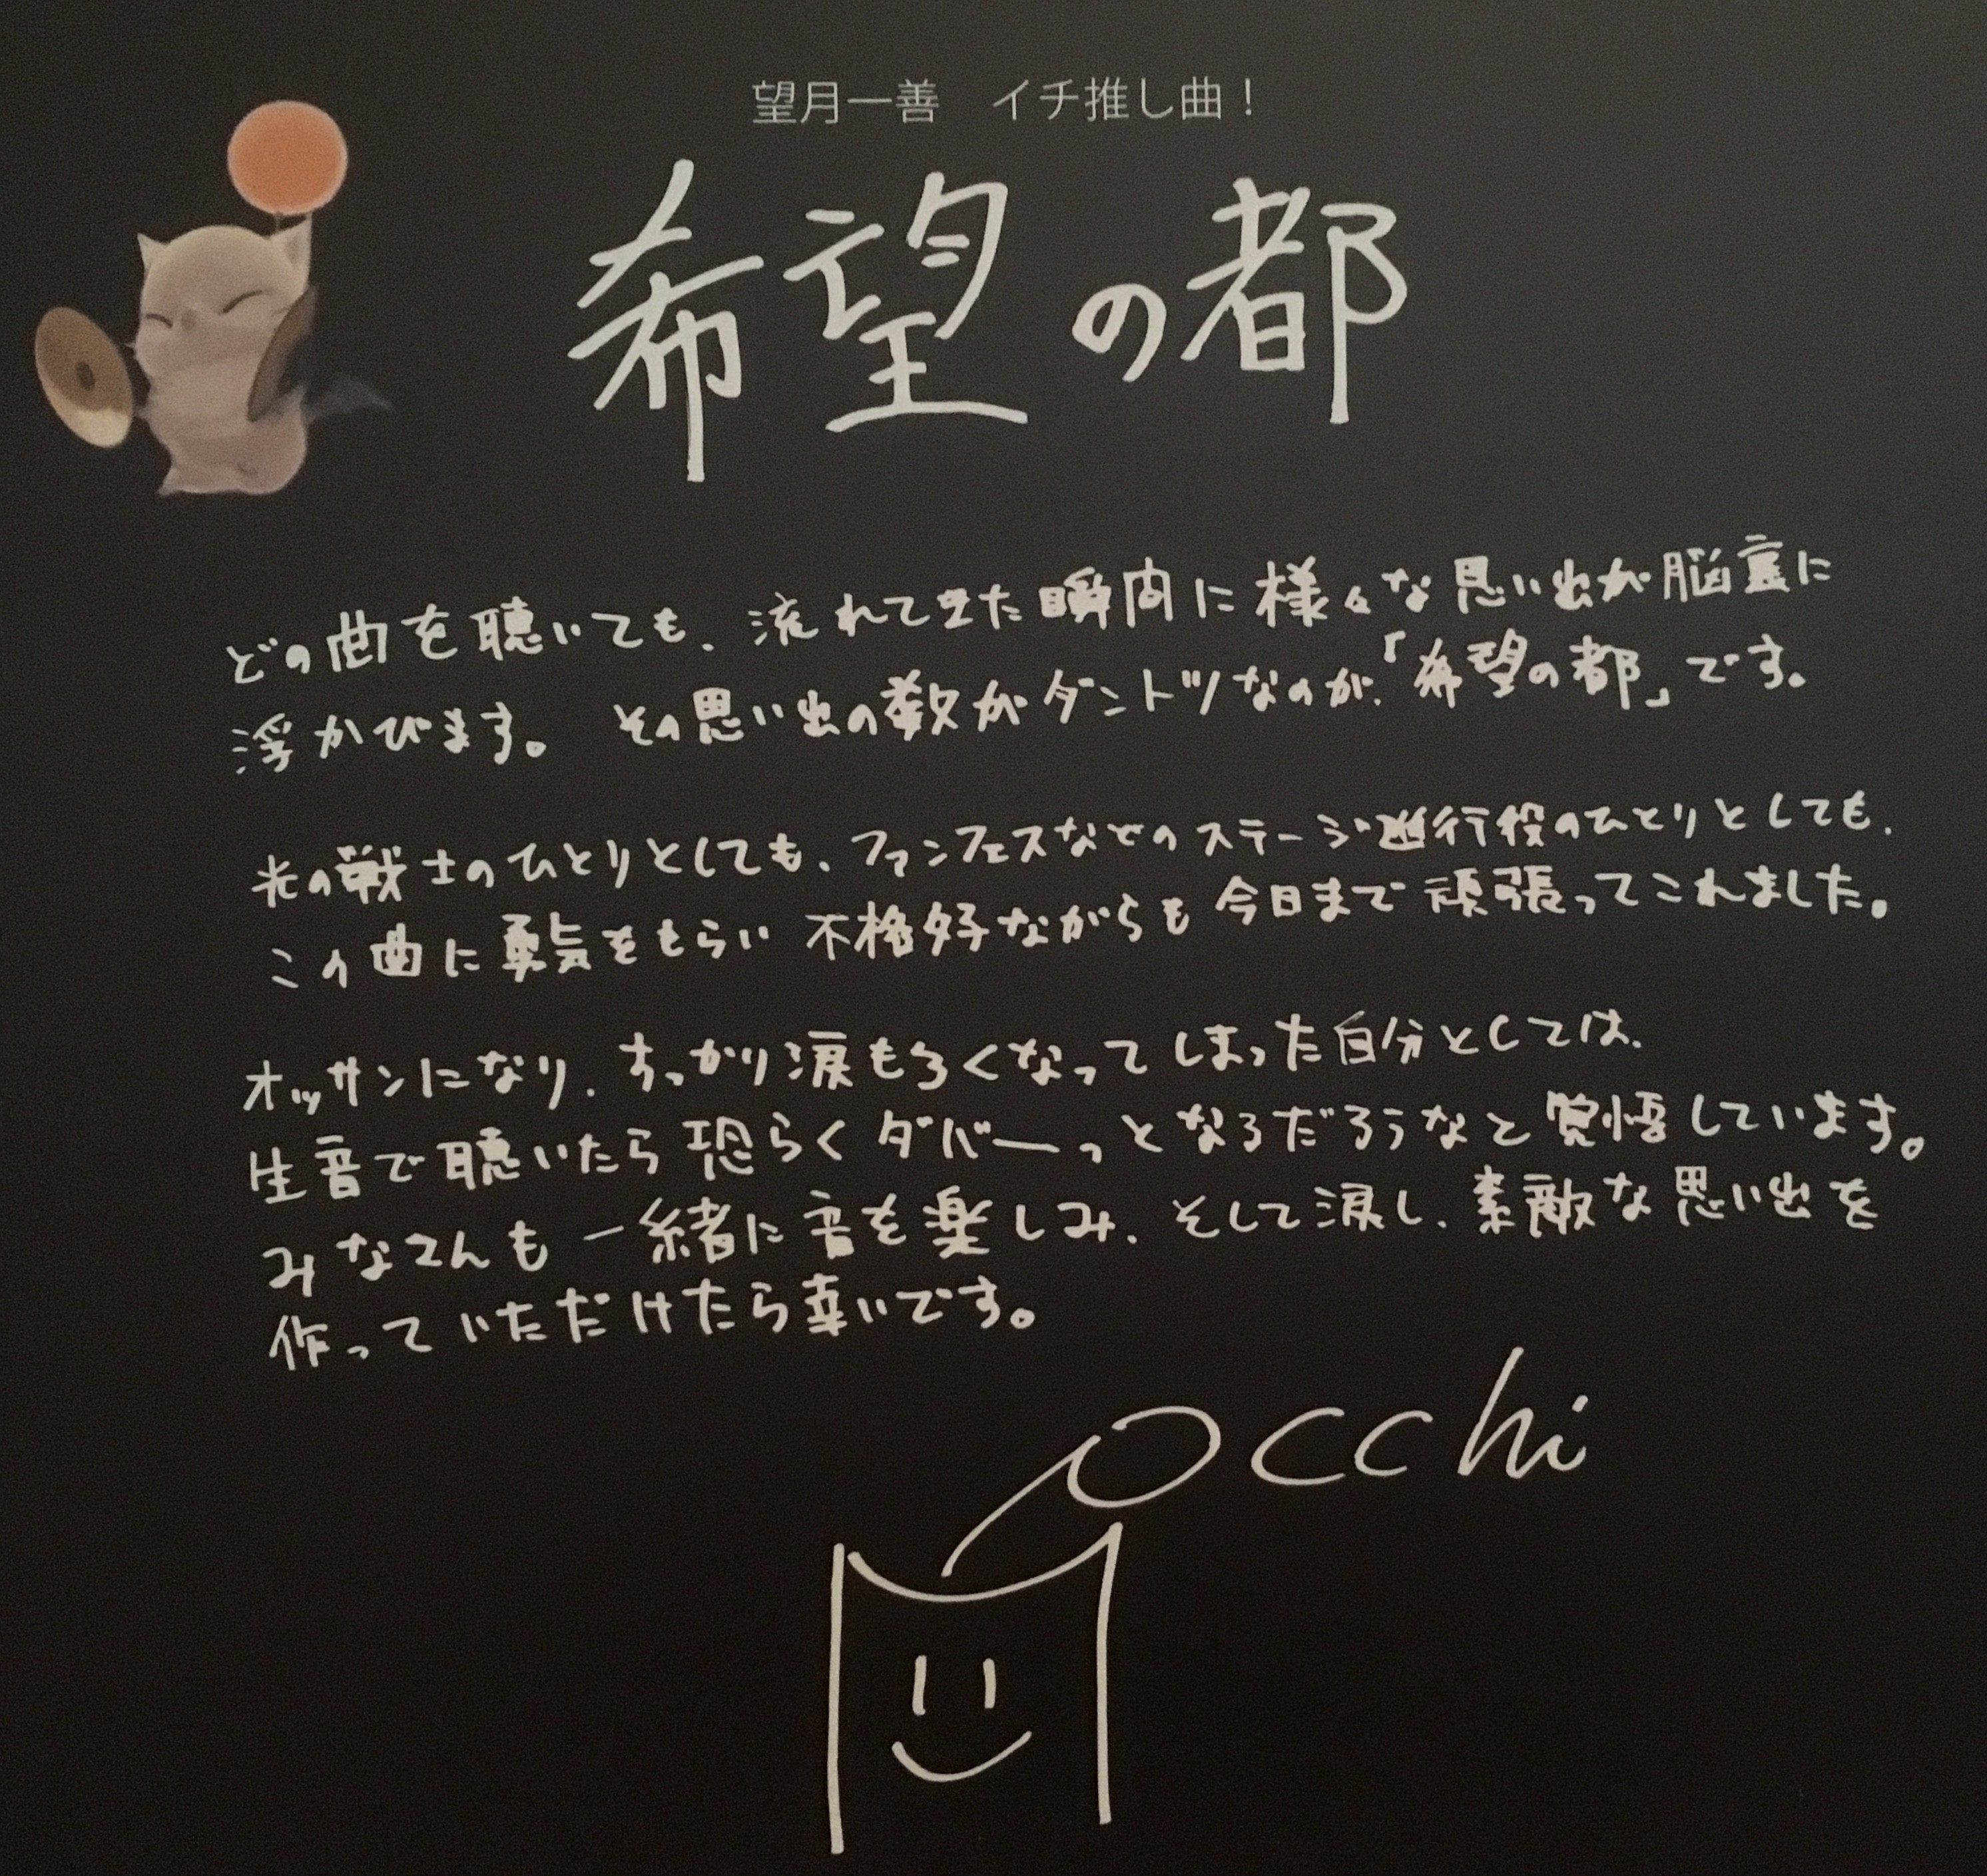 望月一善　イチ推し曲！
希望の都
どの曲を聴いても、流れてきた瞬間に様々な思い出が脳裏に
浮かびます。 その思い出の数がダントツなのが、「希望の都」です。
光の戦士のひとりとしても、ファンフェスなどのステージ進行役のひとりとしても、
この曲に勇気をもらい 不格好ながらも 今日まで 頑張ってこれました。
オッサンになり、すっかり涙もろくなってしまった自分としては、
生音で聴いたら恐らくダバーっとなるだろうなと覚悟しています。
みなさんも一緒に音を楽しみ、そして涙し、素敵な思い出を
作っていただけたら幸いです。
Mocchi